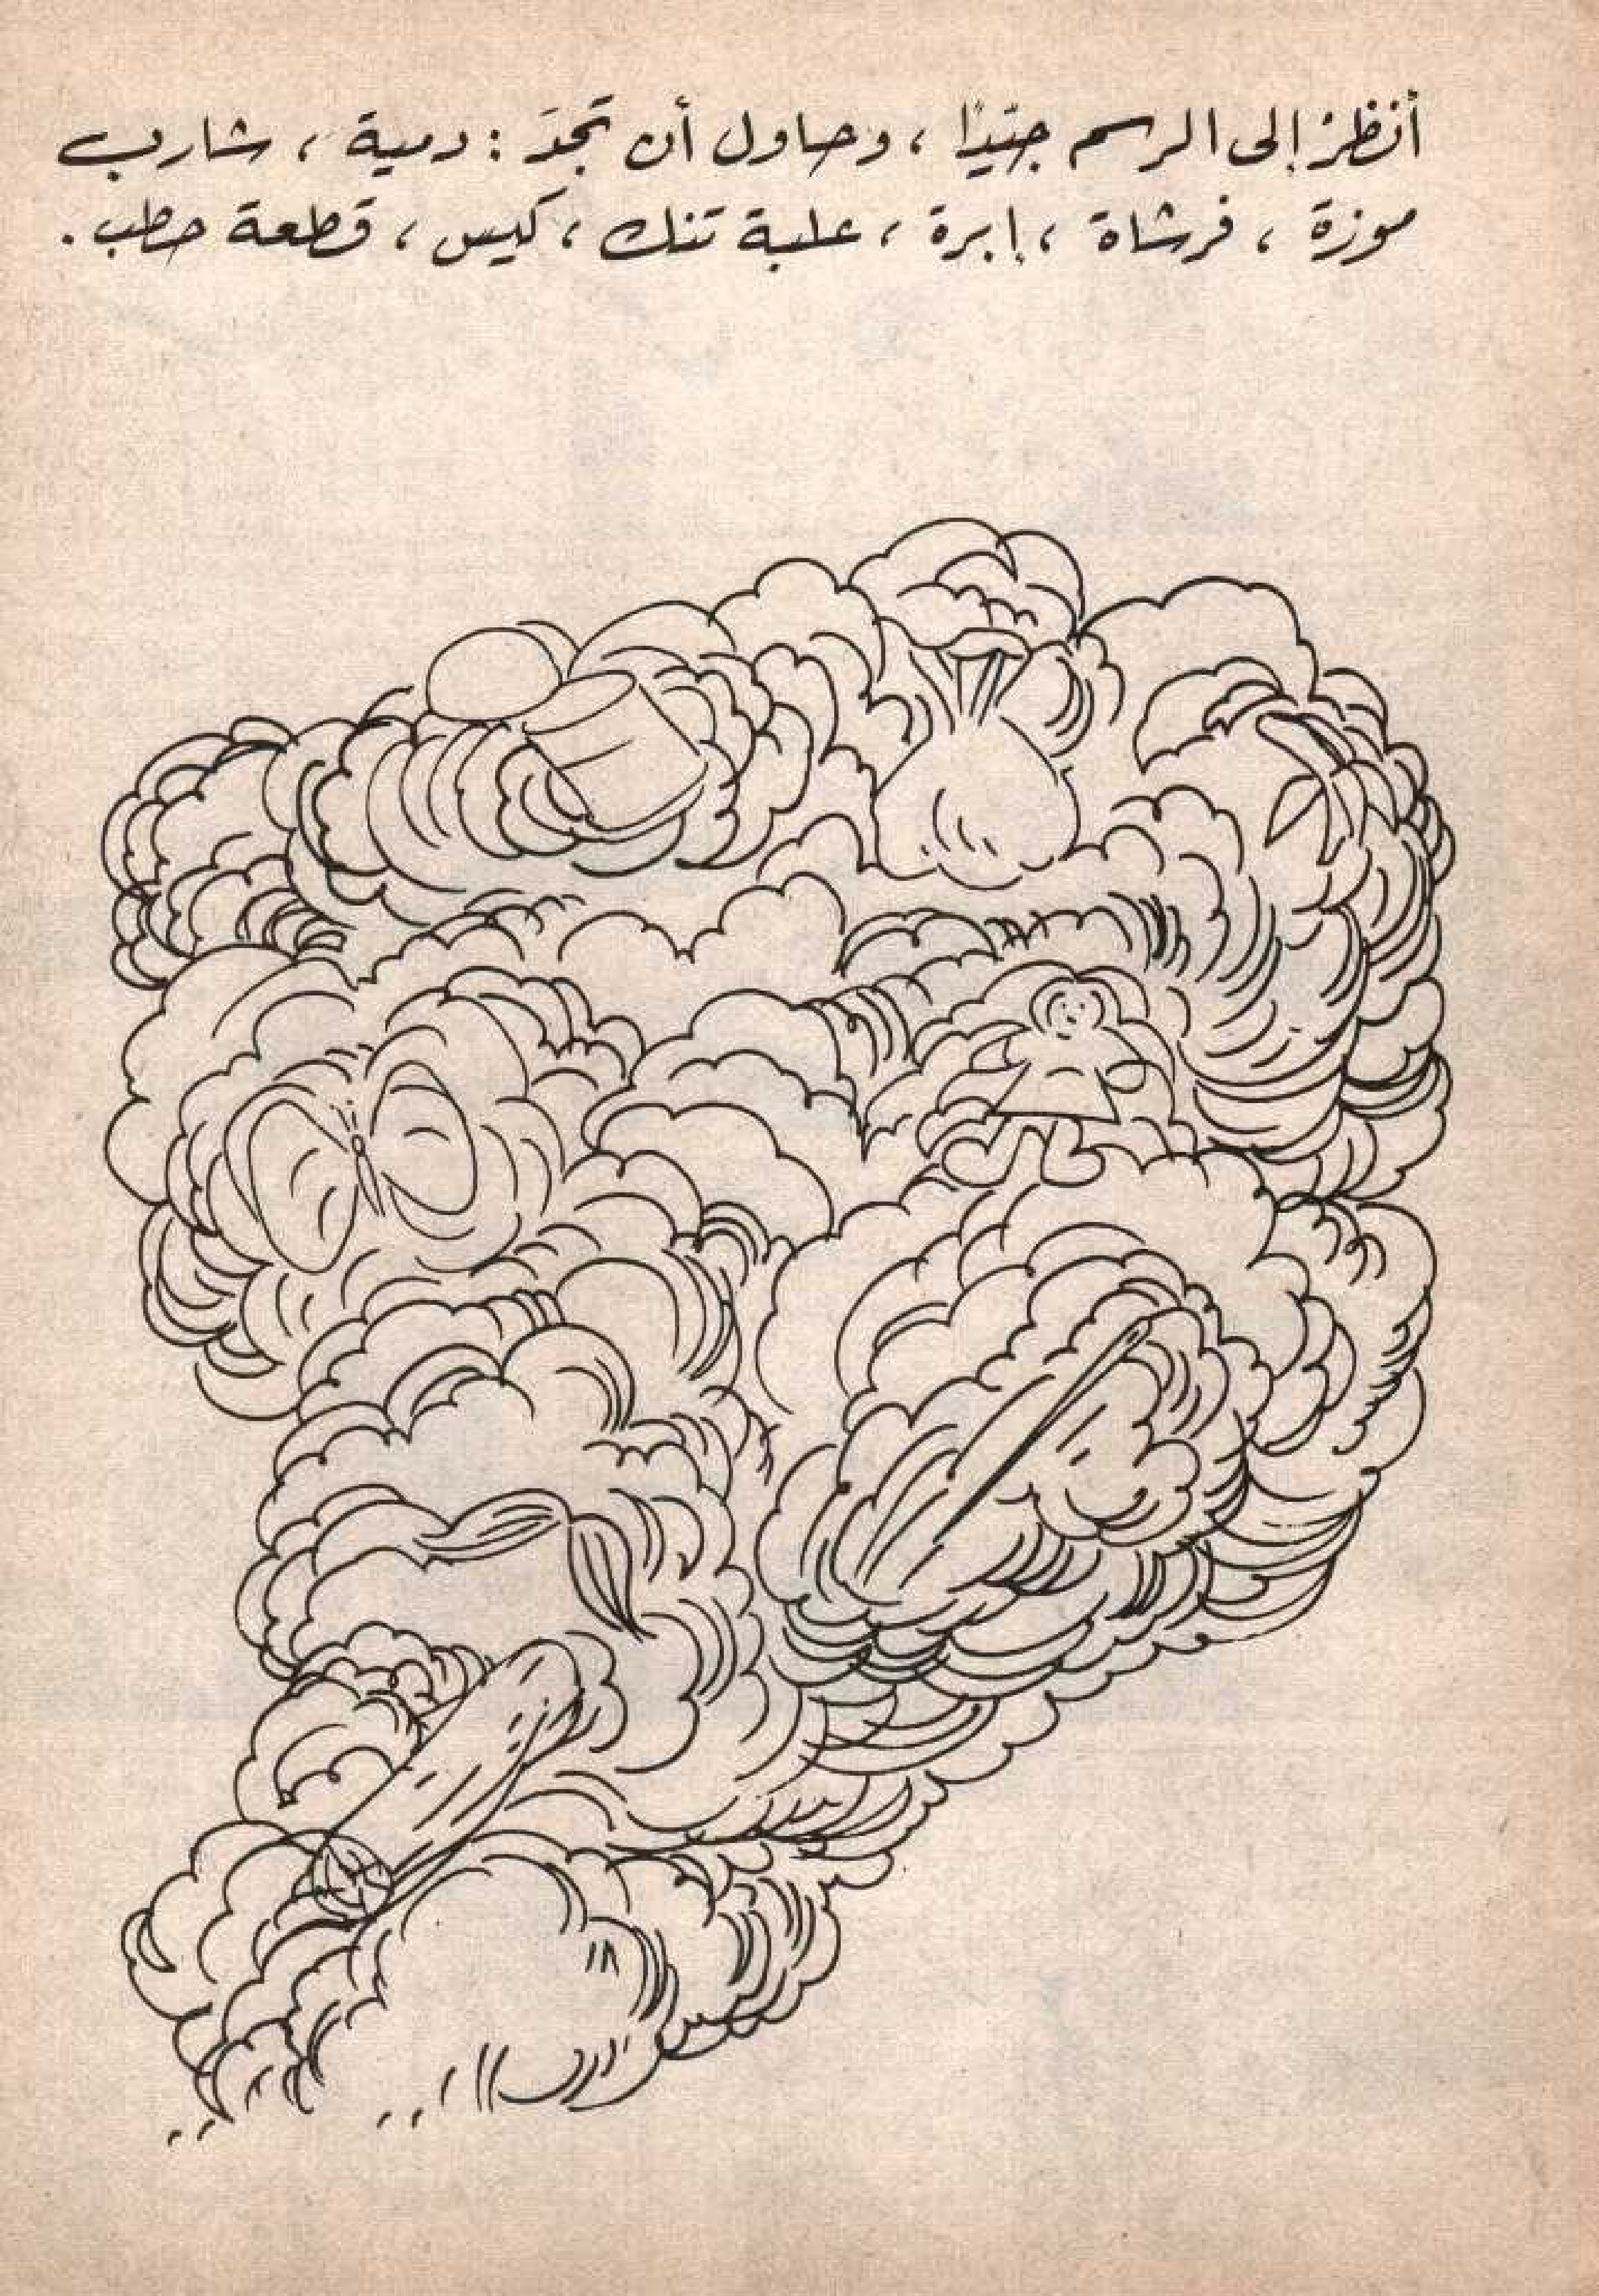 أنظرْ إلى الرسم جيّدًا ، وحاول أن تجدَ : دمية ، شارب
موزة ، فرشاة ، إبرة ، علبة تنك ، كيس ، قطعة حطب .